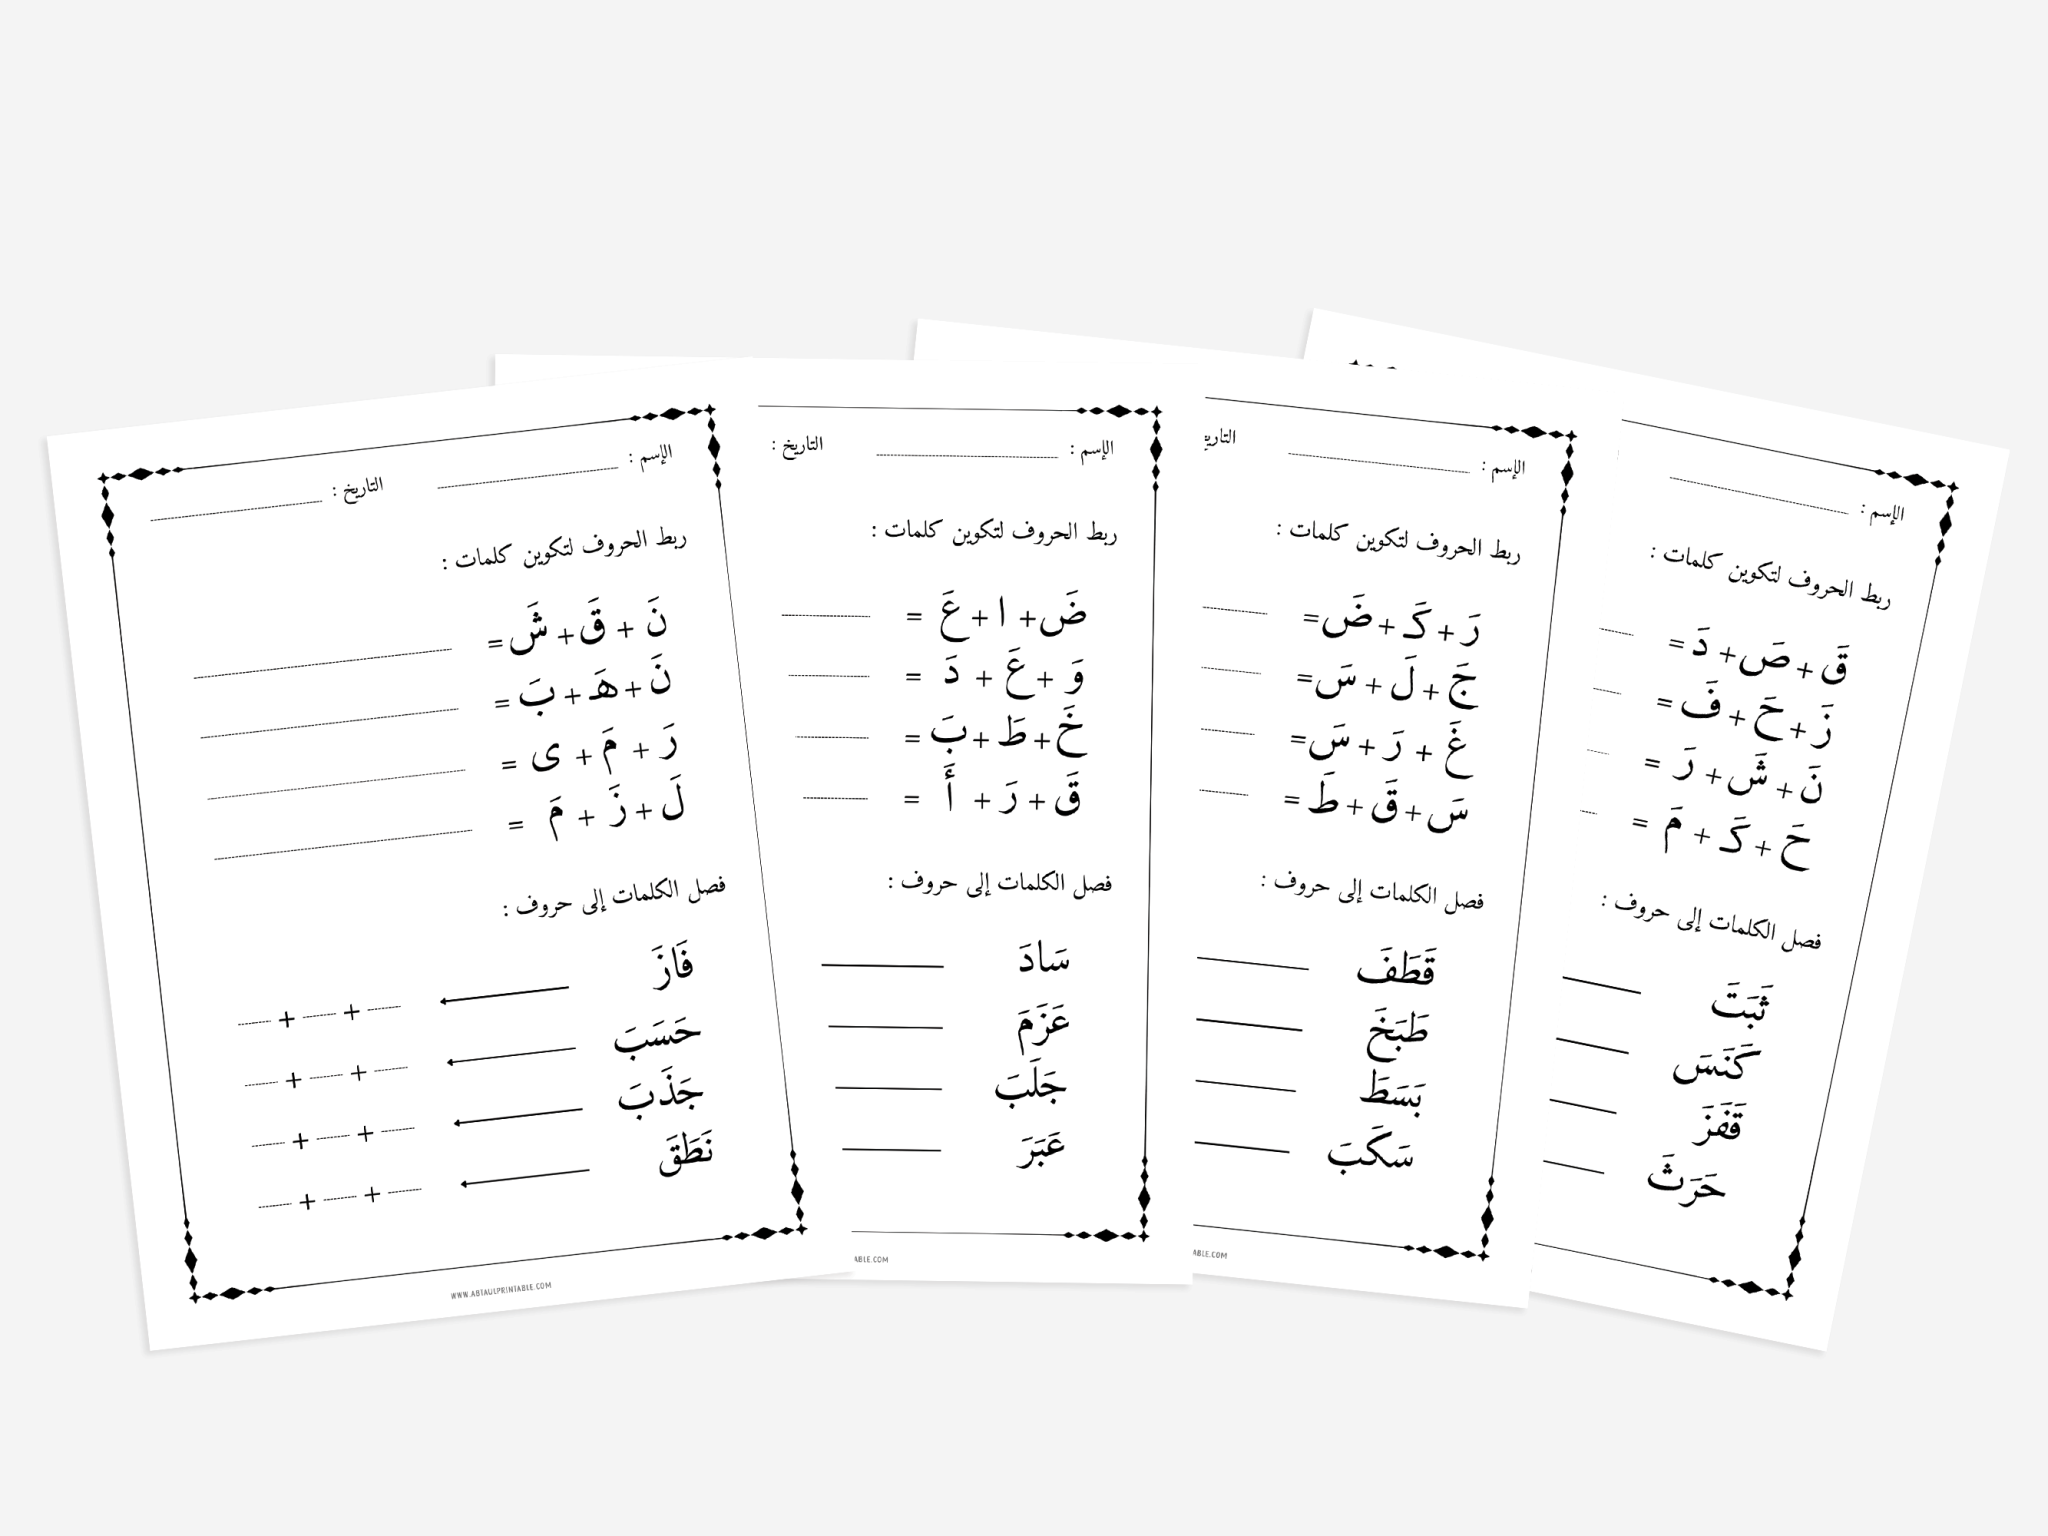 الإسم :
التاريخ :
ربط الحروف لتكوين كلمات :
نَ + قَ + شَ =
نَ + هَـ + بَ =
رَ + مَ + ى =
لَ + زَ + مَ =
فصل الكلمات إلى حروف :
فَازَ + +
حَسَبَ + +
جَذَبَ + +
نَطَقَ + +
WWW.ABTAULPRINTABLE.COM
الإسم :
التاريخ :
ربط الحروف لتكوين كلمات :
ضَ + ا + عَ =
وَ + عَ + دَ =
خَ + طَ + بَ =
قَ + رَ + أَ =
فصل الكلمات إلى حروف :
سَادَ
عَزَمَ
جَلَبَ
عَبَرَ
ABLE.COM
الإسم :
التاري
ربط الحروف لتكوين كلمات :
رَ + كَـ + ضَ =
جَ + لَ + سَ =
غَ + رَ + سَ =
سَ + قَ + طَ =
فصل الكلمات إلى حروف :
قَطَفَ
طَبَخَ
بَسَطَ
سَكَبَ
ABLE.COM
الإسم :
ربط الحروف لتكوين كلمات :
قَ + صَ + دَ =
زَ + حَ + فَ =
نَ + شَ + رَ =
حَ + كَـ + مَ =
فصل الكلمات إلى حروف :
ثَبَتَ
كَنَسَ
قَفَزَ
حَرَثَ